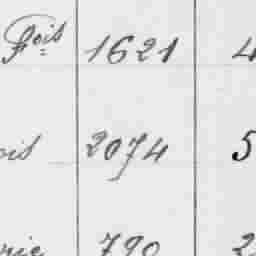 Fois 1621 4
ois 2074 5
rie 790 2